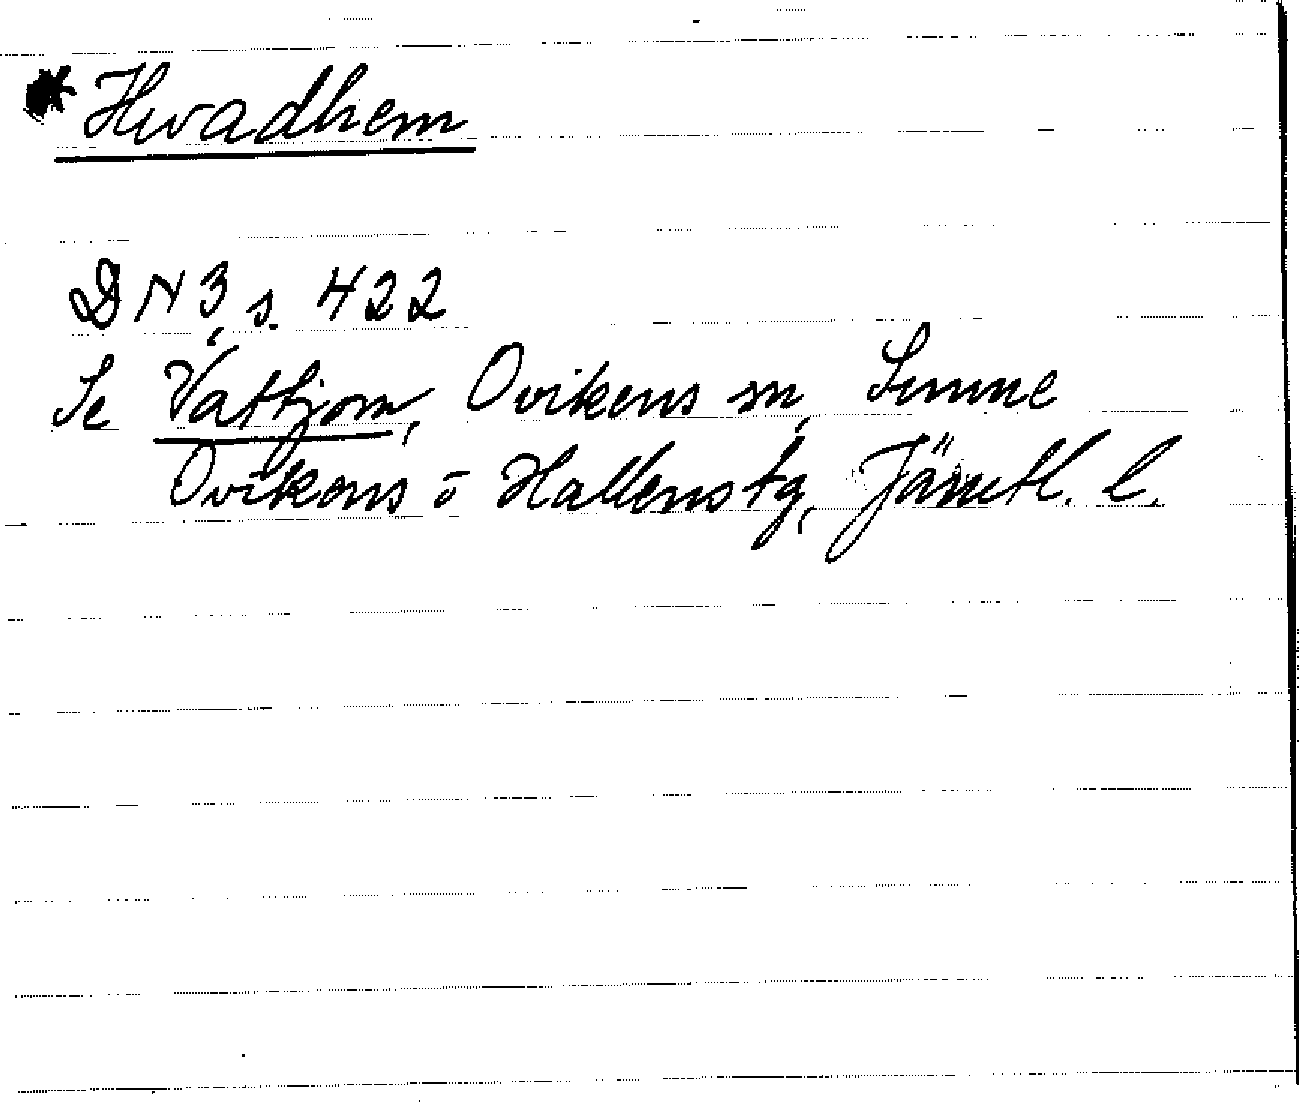 * Hwadhem
DN 3, s. 422
Se Vattjom, Ovikens sn, Sunne
Ovikens o Hallens tg, Jämtl. l.